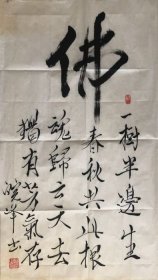 佛
一樹半邊生
春秋共此根
魂歸云天去
猶有芳氣存